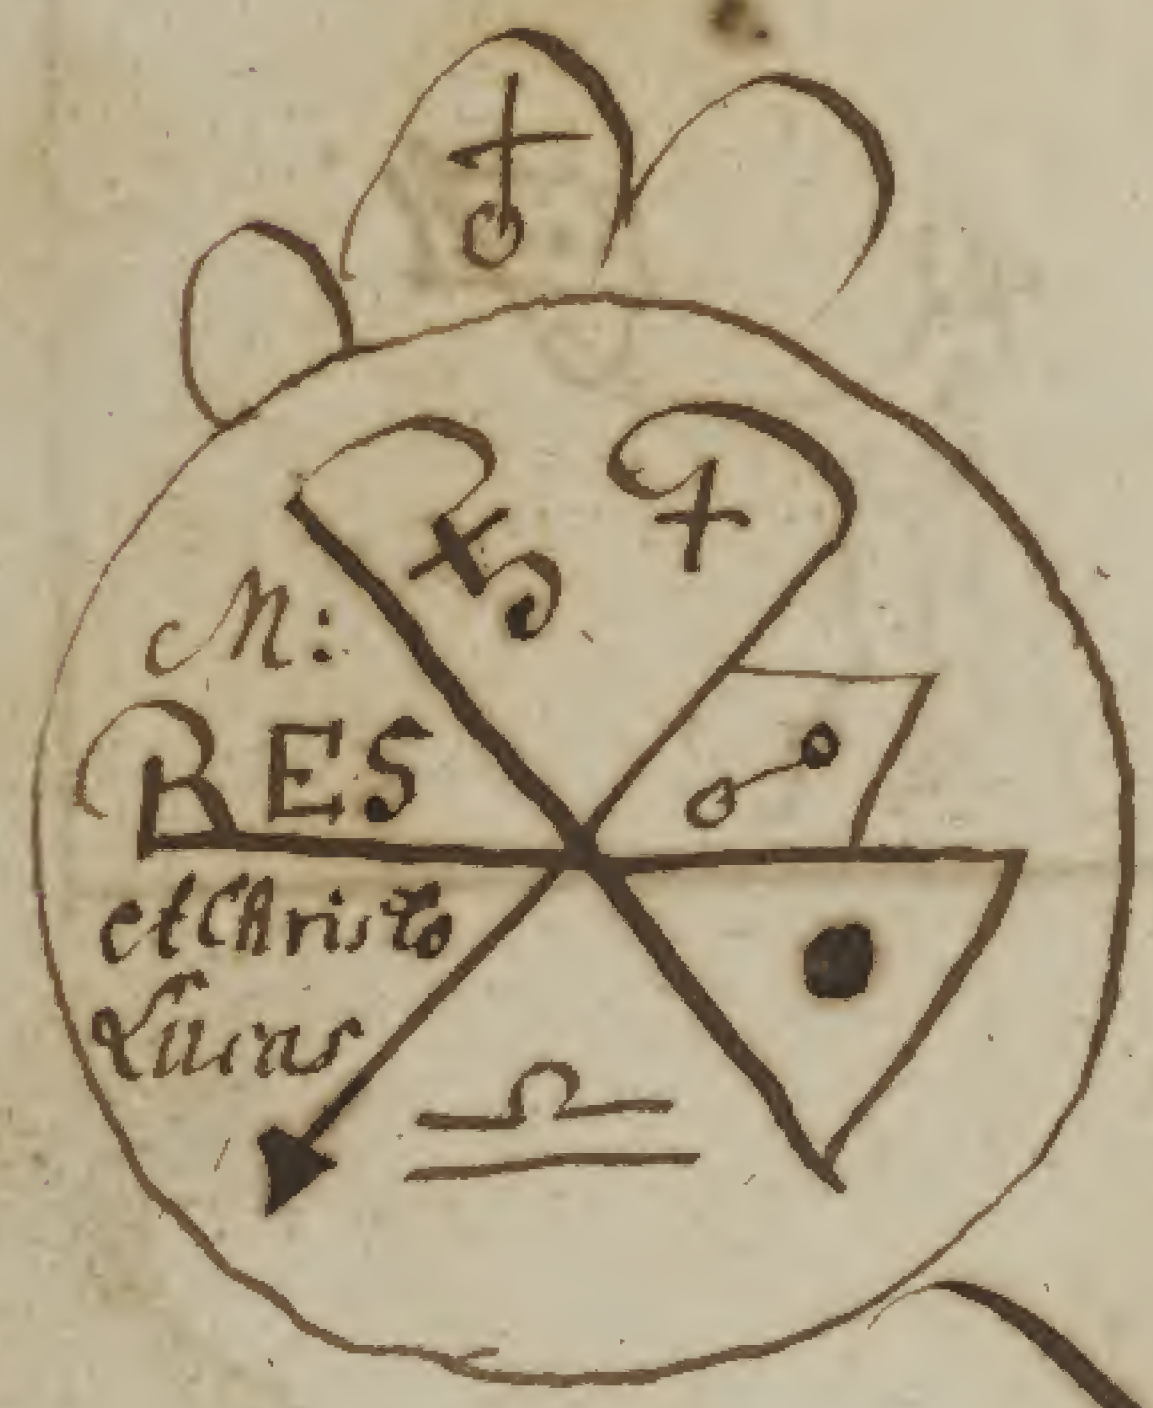 M:
RES
et CAristo
Lucas